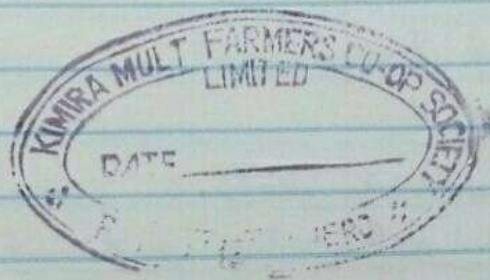 KIMIRA MULT FARMERS CO-OP SOCIETY
LIMITED
DATE